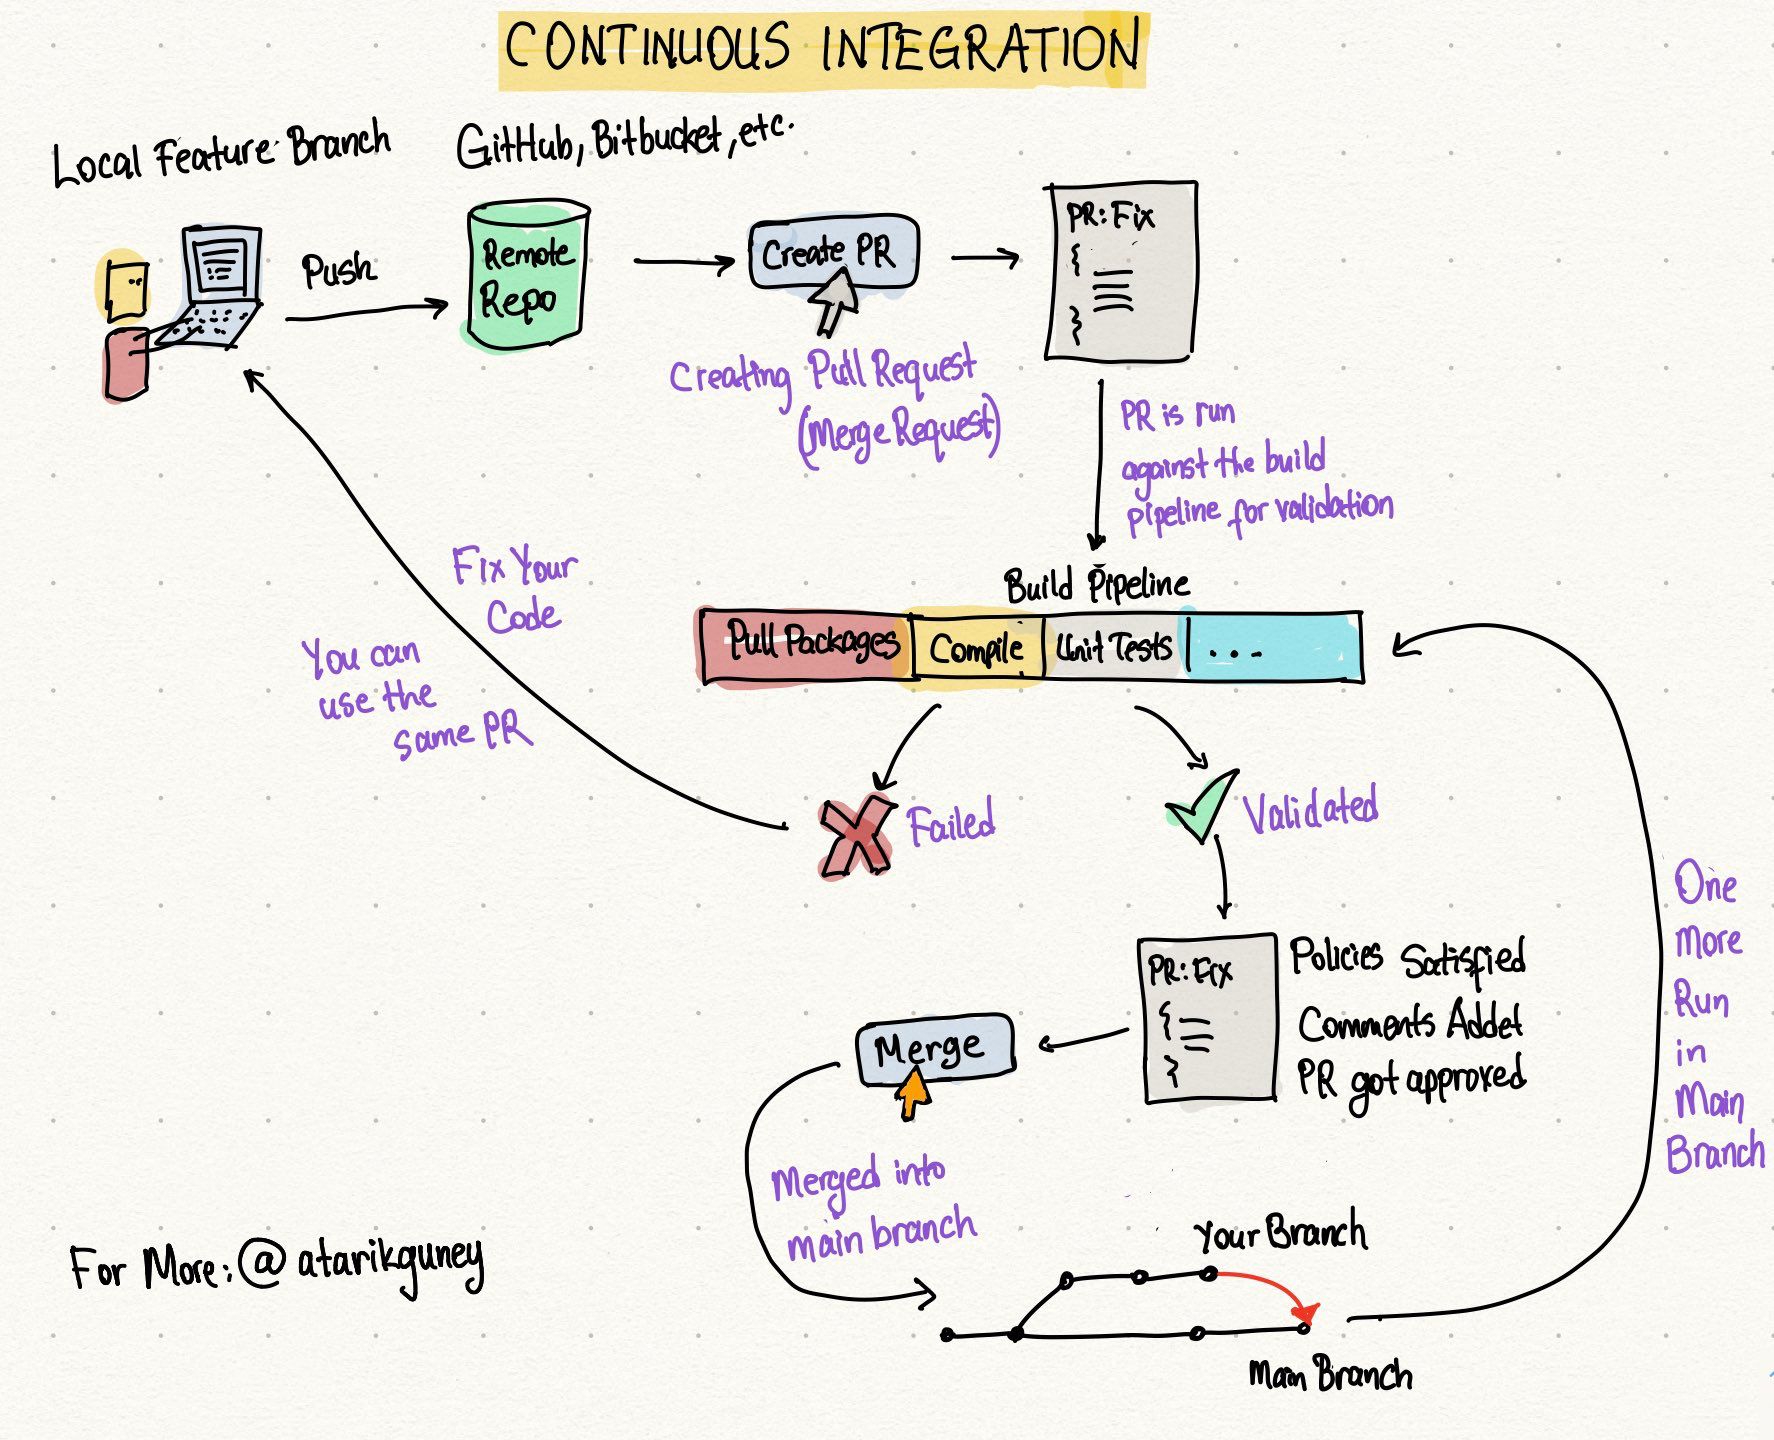 CONTINUOUS INTEGRATION
Local Feature Branch
GitHub, Bitbucket, etc.
Push
Remote
Repo
Create PR
PR: Fix
{
}
Creating Pull Request
(Merge Request)
PR is run
against the build
pipeline for validation
Build Pipeline
Pull Packages
Compile
Unit Tests
...
Fix Your
Code
You can
use the
same PR
Failed
Validated
PR: Fix
{
}
Policies Satisfied
Comments Addet
PR got approved
Merge
Merged into
main branch
One
more
Run
in
Main
Branch
Your Branch
Main Branch
For More: @atarikguney